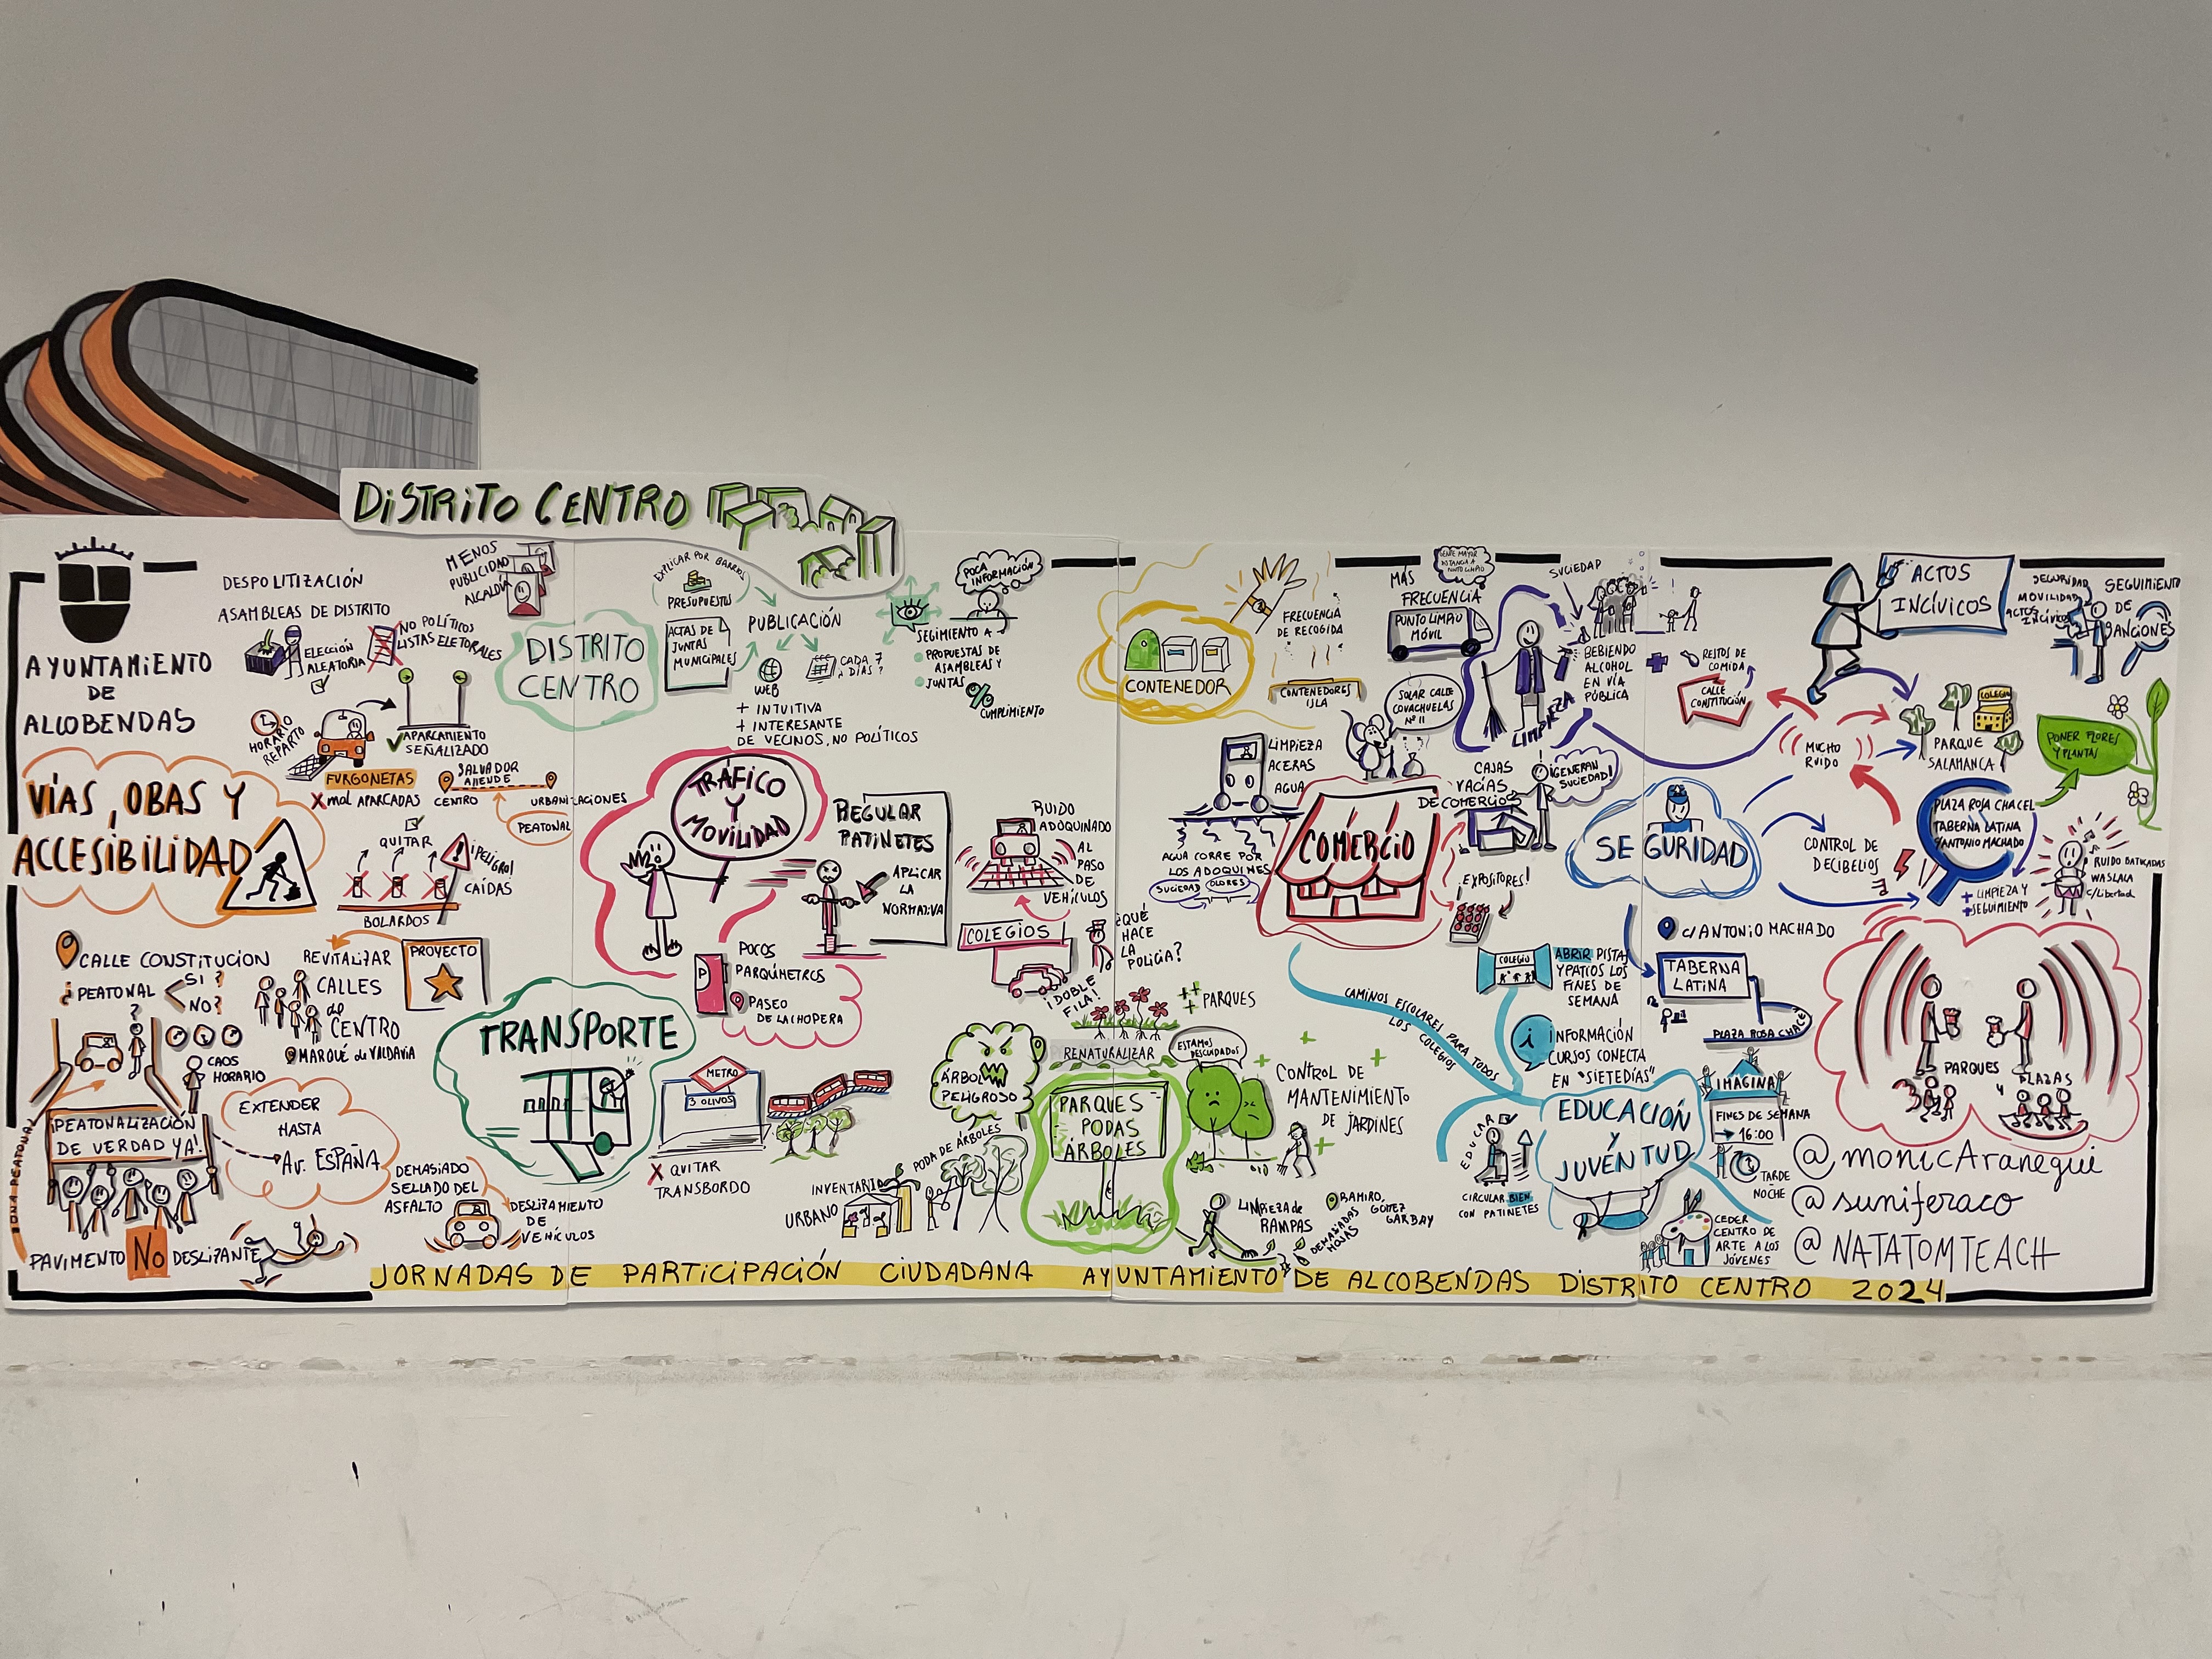 DISTRITO CENTRO
AYUNTAMIENTO
DE
ALCOBENDAS
DESPOLITIZACIÓN
ASAMBLEAS DE DISTRITO
ELECCIÓN
ALEATORIA
NO POLÍTICOS
LISTAS ELETORALES
MENOS
PUBLICIDAD
ALCALDÍA
HORARIO
REPARTO
APARCAMIENTO
SEÑALIZADO
FURGONETAS
X mal APARCADAS
SALVADOR
ALLENDE
CENTRO
URBANIZACIONES
PEATONAL
VÍAS, OBAS Y
ACCESIBILIDAD
QUITAR
BOLARDOS
¡PELIGRO!
CAÍDAS
CALLE CONSTITUCION
¿PEATONAL
SI?
NO?
?
CAOS
HORARIO
REVITALIZAR
CALLES
de
CENTRO
MARQUÉ de VALDAVIA
PROYECTO
¡PEATONALIZACIÓN
DE VERDAD YA!
ZONA PEATONAL
EXTENDER
HASTA
AV. ESPAÑA
PAVIMENTO NO DESLIZANTE
DEMASIADO
SELLADO DEL
ASFALTO
DESLIZAMIENTO
DE
VEHÍCULOS
DISTRITO
CENTRO
EXPLICAR POR BARRIOS
PRESUPUESTOS
ACTAS DE
JUNTAS
MUNICIPALES
PUBLICACIÓN
WEB
CADA 7
DÍAS?
+ INTUITIVA
+ INTERESANTE
DE VECINOS, NO POLÍTICOS
POCA
INFORMACIÓN
SEGIMIENTO A
PROPUESTAS DE
ASAMBLEAS Y
JUNTAS
%
CUMPLIMIENTO
TRÁFICO
Y
MOVILIDAD
REGULAR
PATINETES
APLICAR
LA
NORMATIVA
P
POCOS
PARQUÍMETROS
PASEO
DE LA CHOPERA
RUIDO
ADOQUINADO
AL
PASO
DE
VEHÍCULOS
COLEGIOS
¡DOBLE
FILA!
¿QUÉ
HACE
LA
POLICÍA?
TRANSPORTE
METRO
3 OLIVOS
X QUITAR
TRANSBORDO
ÁRBOL
PELIGROSO
INVENTARIO
URBANO
PODA DE ÁRBOLES
++ PARQUES
RENATURALIZAR
ESTAMOS
DESCUIDADOS
PARQUES
PODAS
ÁRBOLES
CONTROL DE
MANTENIMIENTO
DE JARDINES
LIMPIEZA de
RAMPAS
RAMIRO
GÓMEZ
GARBAY
DEMASIADAS
HOJAS
CONTENEDOR
FRECUENCIA
DE RECOGIDA
CONTENEDORES
ISLA
LIMPIEZA
ACERAS
AGUA
AGUA CORRE POR
LOS ADOQUINES
SUCIEDAD
OLORES
MÁS
FRECUENCIA
GENTE MAYOR
DISTANCIA A
PUNTO LIMPIO
PUNTO LIMPIO
MÓVIL
SOLAR CALLE
COVACHUELAS
Nº 11
LIMPIEZA
SUCIEDAD
BEBIENDO
ALCOHOL
EN VÍA
PÚBLICA
RESTOS DE
COMIDA
CALLE
CONSTITUCIÓN
COMERCIO
CAJAS
VACÍAS
DE COMERCIOS
¡GENERAN
SUCIEDAD!
¡EXPOSITORES!
COLEGIO
ABRIR PISTAS
Y PATIOS LOS
FINES DE
SEMANA
CAMINOS ESCOLARES PARA TODOS
LOS COLEGIOS
i
INFORMACIÓN
CURSOS CONECTA
EN "SIETEDÍAS"
EDUCACIÓN
Y
JUVENTUD
EDUCAR
CIRCULAR BIEN
CON PATINETES
IMAGINA
FINES DE SEMANA
16:00
TARDE
NOCHE
CEDER
CENTRO DE
ARTE A LOS
JÓVENES
SEGURIDAD
ACTOS
INCÍVICOS
SEGURIDAD
MOVILIDAD
ACTOS
INCÍVICOS
SEGUIMIENTO
DE
SANCIONES
MUCHO
RUIDO
COLEGIO
PARQUE
SALAMANCA
PONER FLORES
Y PLANTAS
CONTROL DE
DECIBELIOS
PLAZA ROSA CHACEL
TABERNA LATINA
C/ANTONIO MACHADO
+ LIMPIEZA Y
+ SEGUIMIENTO
RUIDO BATUCADAS
WASLALA
C/Libertad
C/ ANTONIO MACHADO
TABERNA
LATINA
PLAZA ROSA CHACEL
PARQUES
Y
PLAZAS
@monicAranegui
@suniferaco
@NATATOMTEACH
JORNADAS DE PARTICIPACIÓN CIUDADANA AYUNTAMIENTO DE ALCOBENDAS DISTRITO CENTRO 2024